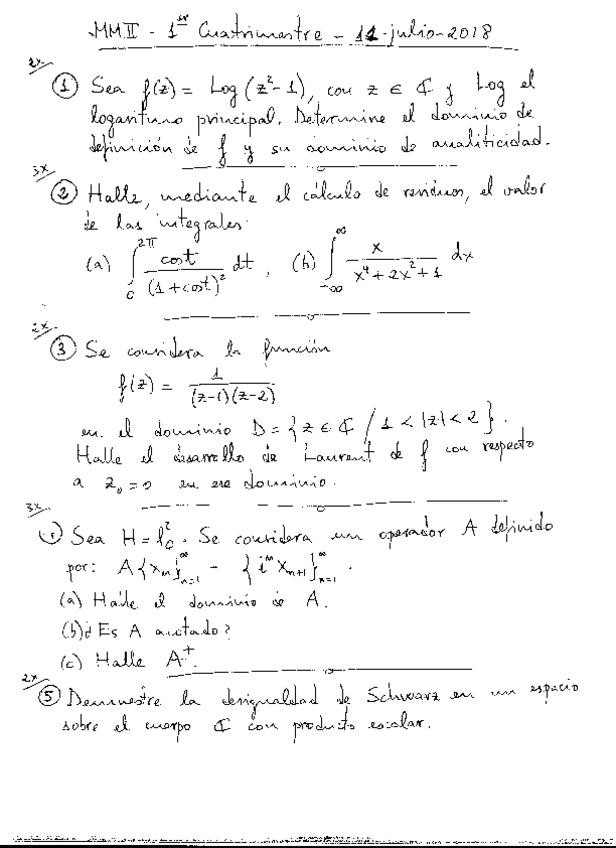 MMII - 1er Cuatrimestre - 11-julio-2018
2x
① Sea f(z) = Log(z²-1), con z ∈ ℂ y Log el
logaritmo principal. Determine el dominio de
definición de f y su dominio de analiticidad.
3x
② Halle, mediante el cálculo de residuos, el valor
de las integrales
(a) ∫₀^{2π} cost / (1+cost)² dt, (b) ∫_{-∞}^{∞} x / (x⁴+2x²+1) dx
2x
③ Se considera la función
f(z) = 1 / ((z-1)(z-2))
en el dominio D = {z ∈ ℂ / 1 < |z| < 2}.
Halle el desarrollo de Laurent de f con respecto
a z₀=0 en ese dominio.
3x
Sea H = l²_C. Se considera un operador A definido
por: A{xₙ}_{n=1}^∞ = {iⁿ xₙ₊₁}_{n=1}^∞.
(a) Halle el dominio de A.
(b) ¿Es A acotado?
(c) Halle A⁺.
2x
⑤ Demuestre la desigualdad de Schwarz en un espacio
sobre el cuerpo ℂ con producto escalar.